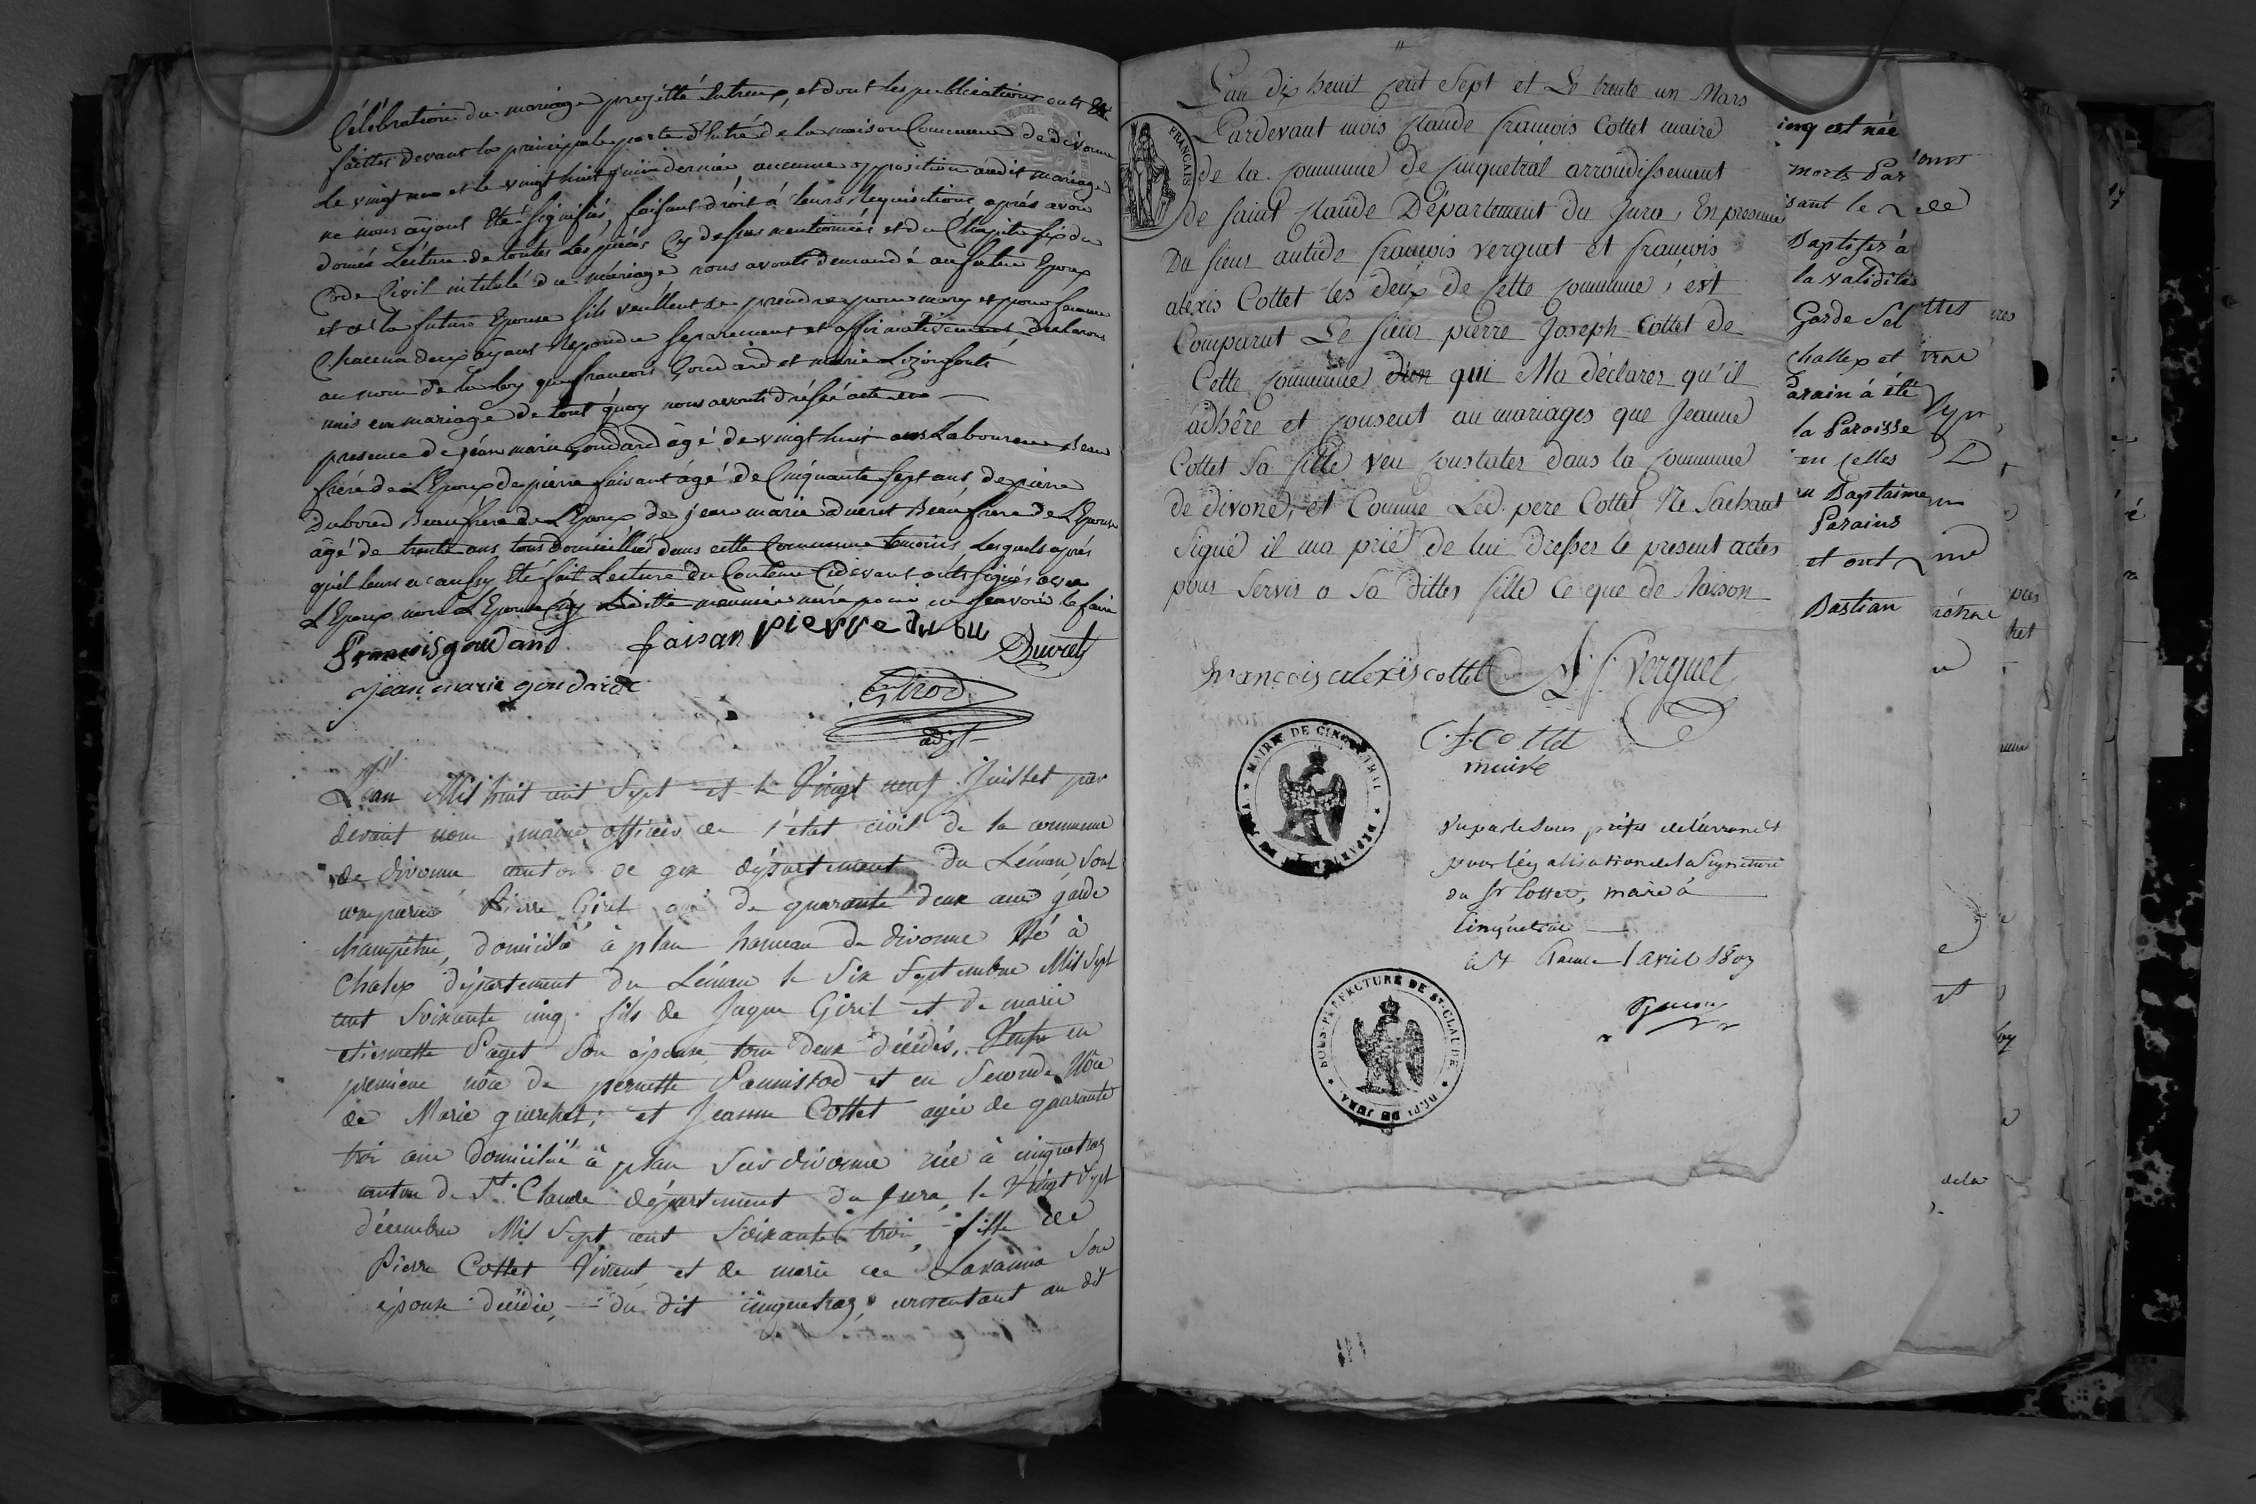 Célébration du mariage projetté Entreux, et dont les publications onts Eté
faittes devant la principale porte d'Entré de la maison Commune de divonne
Le vingt une et le vingt huit juin dernier, aucunne opposition audit mariage
ne nous ayant Eté signifiée, faisant droit à leurs Requisitions aprés avoir
donné Lécture de toutes Les piéces Cy dessus mentionnées et du Chapitre six du
Code Civil intitulé du mariage nous avonts demandé au futur Epoux
et à la future Epouse sils veullent se prendre pour mary et pour femme
Chacun deux ayant Repondu separement et affirmativement, declarons
au nom de la loy que francois Goudard et marie Lizon sonts
unis en mariage de tout quoy nous avonts dréssé acte en
presence de jéan marie Goudard âgé de vingt huit ans Laboureur Beau
frére de L'Epoux de pierre faisant âgé de Cinquante sept ans, de pierre
Dubord Beaufrére de L'Epoux de jean marie duvret Beaufrere de L'Epouse
âgé de trente ans, tous Domiciliés dans cette Commune temoins, Lesquels aprés
qu'il leurs en aussy Eté fait Lecture du Contenu Cidevant onts signés avec
L'Epoux non L'Epouse ny Laditte meunier mére pour ne sçavoir le faire
François goudard faisan pierre du bu Duvret
jean marie goudard Girod
adjt
L'an Mil huit cent Sept et le Vingt neuf Juillet par
devant nous maire officier de l'état civil de la commune
de divonne canton de gex département du Léman, sont
comparus Pierre Girit, agé de quarante deux ans garde
champêtre, domicilié à plan hameau de divonne Né à
Chalex département du Léman le Six Septembre Mil Sept
cent Soixante cinq. fils de Jaque Girit et de marie
etiennette Paget Son épouse, tous deux décédés. Veuf en
premiere nôce de pernette Pannissod et en Seconde Nôce
de Marie guerchet; et Jeanne Cottet agée de quarante
trois ans domiciliée à plan Sur divonne née à cinquetraz
canton de St. Claude département du Jura, le Vingt Sept
décembre Mil Sept cent Soixante trois, fille de
Pierre Cottet Vivant et de marie de Lavanna Son
épouse décédée, du dit cinquetraz, consentant au dit
L'an dix heuit cent Sept et Le trente un Mars
Pardevant mois Claude françois Cottet maire
de la Commune de Cinquetral arrondissement
de Saint Claude Département du Jura, En presence
Du sieur antide françois verguet Et françois
alexis Cottet les deux de cette commune, est
Comparut Le sieur pierre Joseph Cottet de
Cette Commune d'un qui Ma déclarer qu'il
adhère et consent au mariages que Jeanne
Cottet Sa fille veu constater dans la commune
de divone, et Comme Led. pere Cottet Ne Sachant
Signé il ma prié de lui dresser le present actes
pour Servir a Sa dittes fille Ce que de Raison
françois alexis cottet A. f. Verguet
C. f. Cottet
maire
FRANCAIS
MAIRIE DE CINQUETRAL
DEPARTT DU JURA
Vu par le Sous préfet de l'arrondt
pour légalisation de la Signature
du Sr Cottet, maire à
Cinquetral
à St Claude 1 avril 1807
SOUS-PREFECTURE DE ST. CLAUDE
DEPT DU JURA
cinq est née
morts Par
isant le
Baptisés à
la validité
Garde Sel
Challex et
Parain à été
la Paroisse
en celles
Baptaime
Parains
et ont
Bastian
de la